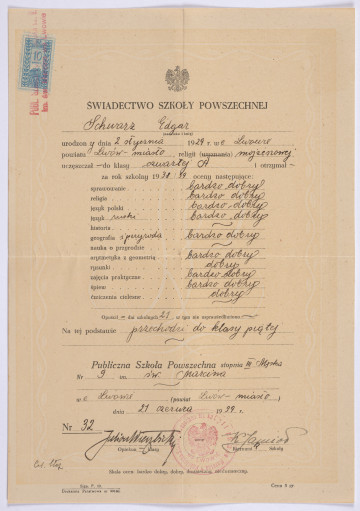 10
ŚWIADECTWO SZKOŁY POWSZECHNEJ
Schwarz Edgar
(nazwisko i imię)
urodzony dnia 2 stycznia 1929 we Lwowie
powiatu Lwów-miasto religii (wyznania) mojżeszowej
uczęszczał do klasy czwartej A i otrzymał
za rok szkolny 19 oceny następujące:
sprawowanie bardzo dobry
religia bardzo dobry
język polski bardzo dobry
język ruski bardzo dobry
historia
geografia i przyroda bardzo dobry
nauka o przyrodzie
arytmetyka z geometrią bardzo dobry
rysunki dobry
zajęcia praktyczne bardzo dobry
śpiew bardzo dobry
ćwiczenia cielesne dobry
Opuścił dni szkolnych 21 w tym nie usprawiedliwiono
Na tej podstawie przechodzi do klasy piątej
Publiczna Szkoła Powszechna stopnia III Męska
Nr 9 im. św. Marcina
we Lwowie (powiat Lwów-miasto)
dnia 21 czerwca 1939 r.
Nr 32
Opiekun klasy
Kierownik Szkoły
Skala ocen: bardzo dobry, dobry, dostateczny, niedostateczny.
Cena 5 gr.